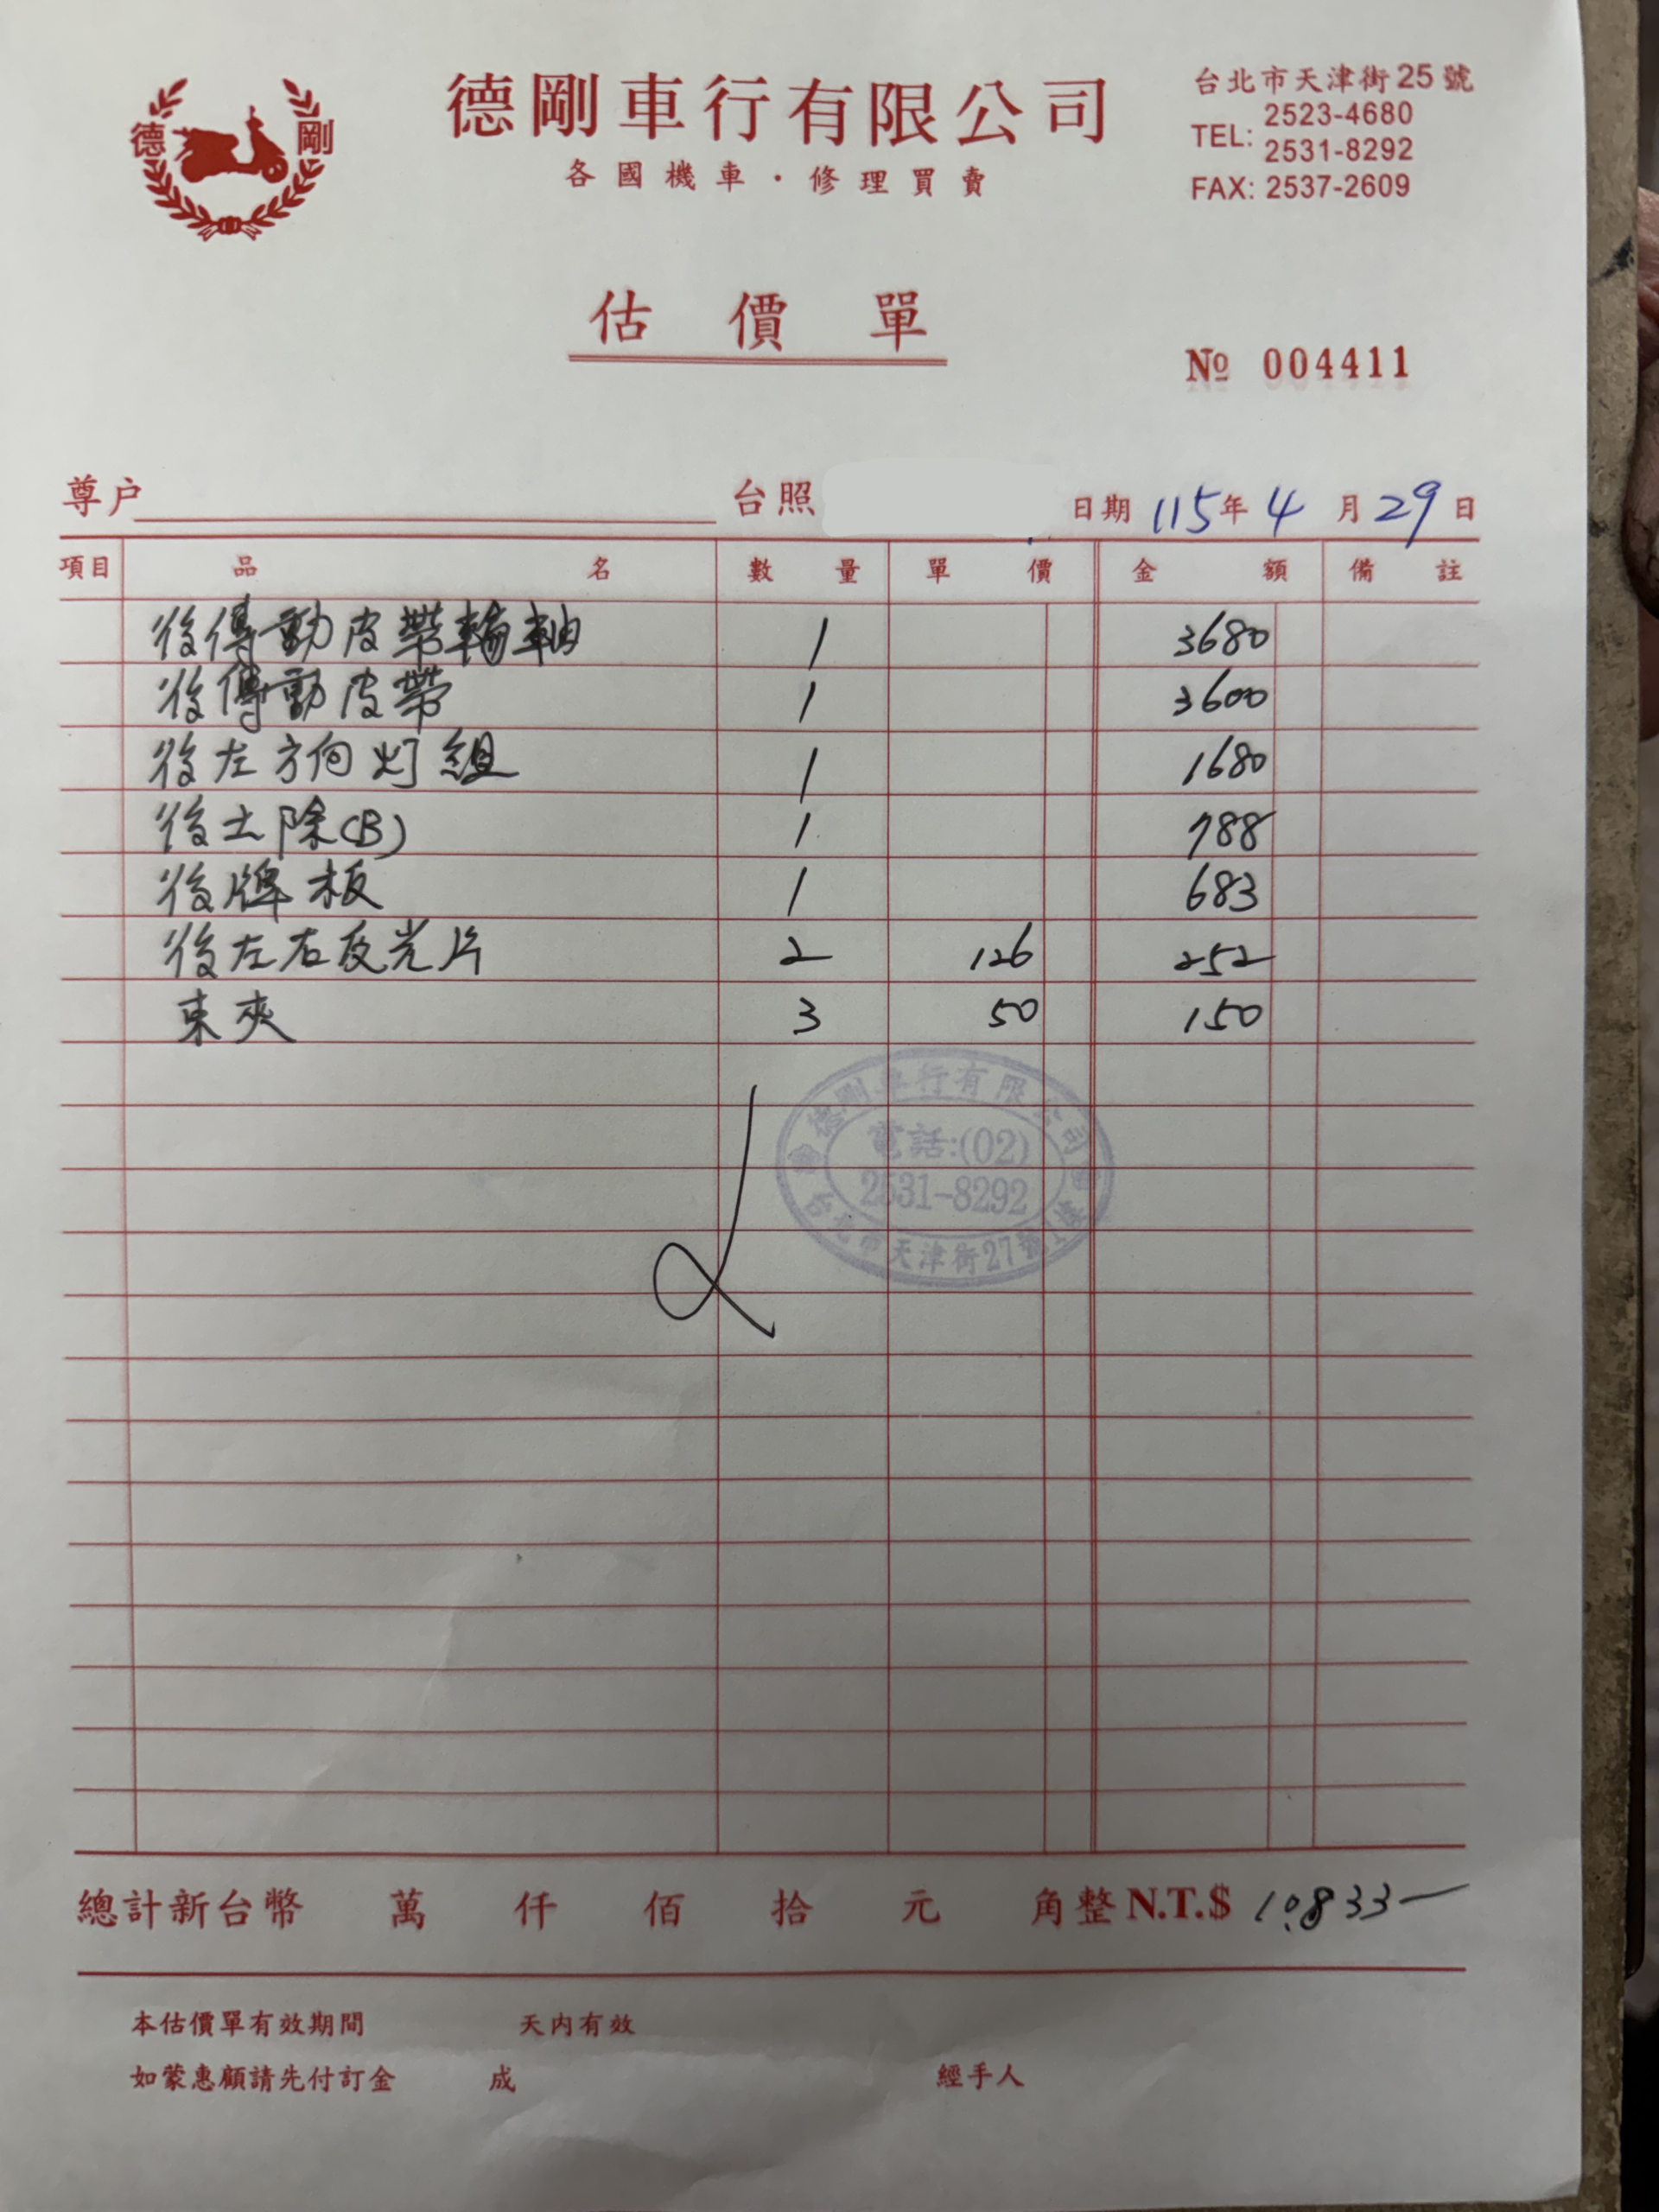 德 剛
德剛車行有限公司
各國機車·修理買賣
台北市天津街25號
TEL: 2523-4680
2531-8292
FAX: 2537-2609
估價單
№ 004411
尊户 台照 日期 115年 4 月 29 日
項目 品名 數量 單價 金額 備註
後傳動皮帶輪軸 1 3680
後傳動皮帶 1 3600
後左方向灯組 1 1680
後土除(B) 1 788
後牌板 1 683
後左右反光片 2 126 252
束夾 3 50 150
德剛車行有限公司
電話:(02)
2531-8292
台北市天津街27號1樓
總計新台幣 萬 仟 佰 拾 元 角整 N.T.$ 10,833
本估價單有效期間 天內有效
如蒙惠顧請先付訂金 成 經手人